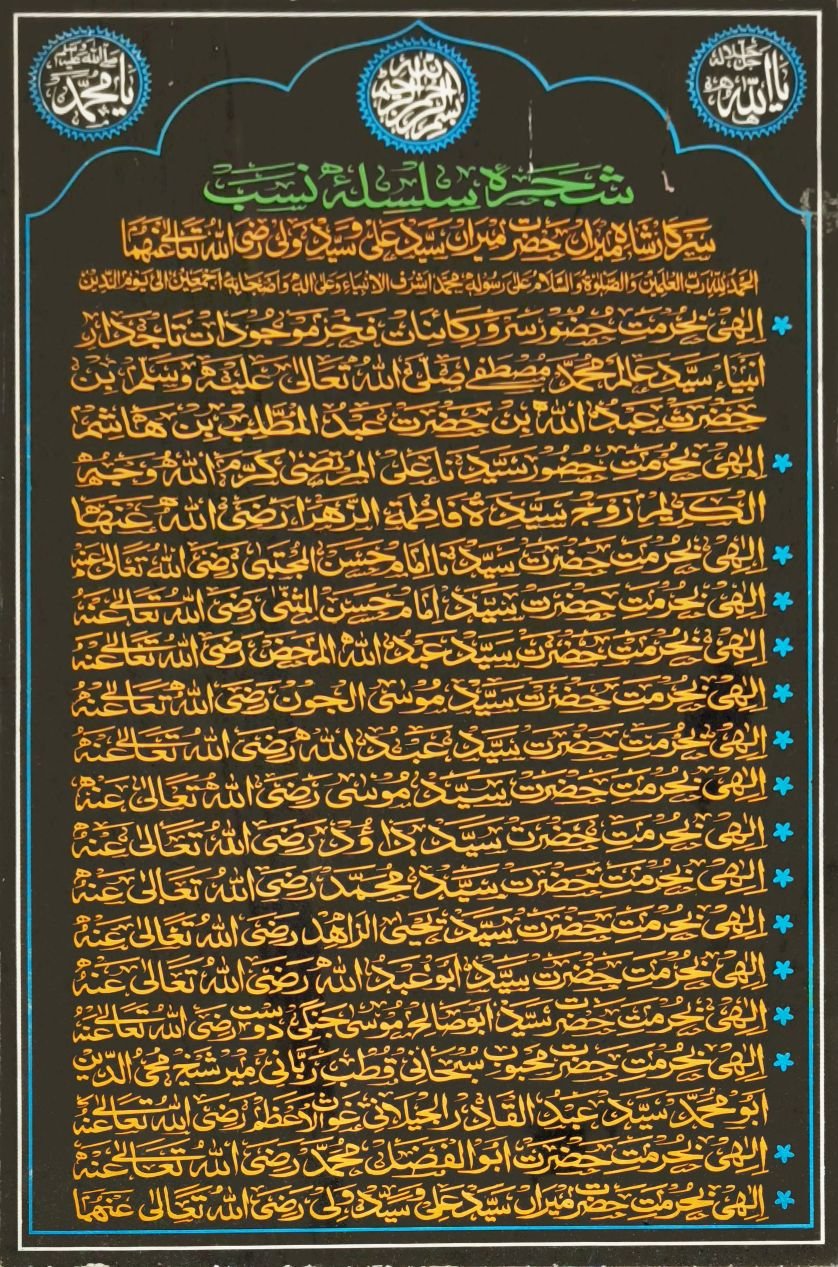 یا اللہ جل جلالہ
بسم اللہ الرحمن الرحیم
یا محمد صلی اللہ علیہ وسلم
شجرہ سلسلۂ نسب
سرکار شاہ میراں حضرت میراں سید علی و سید ولی رضی اللہ تعالیٰ عنہما
الحمد للہ رب العلمین والصلوٰۃ والسلام علیٰ رسولہٖ محمد اشرف الانبیاء وعلیٰ الہٖ واصحابہٖ اجمعین الیٰ یوم الدین
الٰہی بحرمتِ حضور سرورِ کائنات فخرِ موجودات تاجدارِ
انبیاء سیدِ عالم محمد مصطفےٰ صلی اللہ تعالیٰ علیہ وسلم بن
حضرت عبد اللہ بن حضرت عبد المطلب بن ھاشم
الٰہی بحرمتِ حضور سیدنا علی المرتضیٰ کرم اللہ وجہہ
الکریم زوج سیدہ فاطمۃ الزھرا رضی اللہ عنہما
الٰہی بحرمت حضرت سیدنا امام حسن المجتبیٰ رضی اللہ تعالیٰ عنہ
الٰہی بحرمت حضرت سید امام حسن المثنیٰ رضی اللہ تعالیٰ عنہ
الٰہی بحرمت حضرت سید عبد اللہ المحض رضی اللہ تعالیٰ عنہ
الٰہی بحرمت حضرت سید موسی الجون رضی اللہ تعالیٰ عنہ
الٰہی بحرمت حضرت سید عبد اللہ رضی اللہ تعالیٰ عنہ
الٰہی بحرمت حضرت سید موسی رضی اللہ تعالیٰ عنہ
الٰہی بحرمت حضرت سید داؤد رضی اللہ تعالیٰ عنہ
الٰہی بحرمت حضرت سید محمد رضی اللہ تعالیٰ عنہ
الٰہی بحرمت حضرت سید یحییٰ الزاھد رضی اللہ تعالیٰ عنہ
الٰہی بحرمت حضرت سید ابو عبد اللہ رضی اللہ تعالیٰ عنہ
الٰہی بحرمت حضرت سید ابو صالح موسی جنگی دوست رضی اللہ تعالیٰ عنہ
الٰہی بحرمت حضرت محبوب سبحانی قطب ربانی میر شیخ محی الدین
ابو محمد سید عبد القادر الجیلانی غوث الاعظم رضی اللہ تعالیٰ عنہ
الٰہی بحرمت حضرت ابو الفضل محمد رضی اللہ تعالیٰ عنہ
الٰہی بحرمت حضرت میراں سید علی و سید ولی رضی اللہ تعالیٰ عنہما